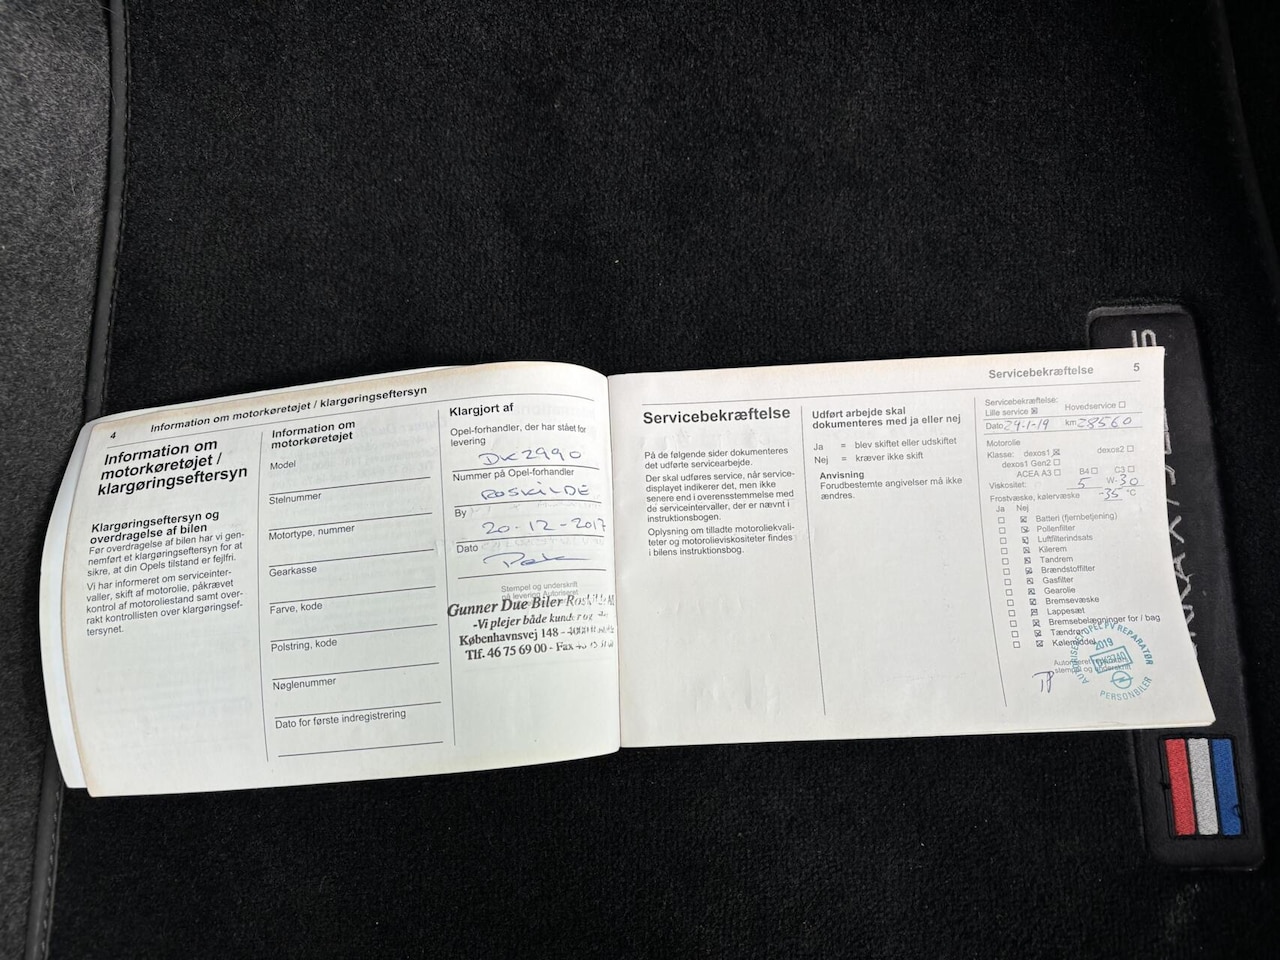 4 Information om motorkøretøjet / klargøringseftersyn
Information om
motorkøretøjet /
klargøringseftersyn
Klargøringseftersyn og
overdragelse af bilen
Før overdragelse af bilen har vi gen-
nemført et klargøringseftersyn for at
sikre, at din Opels tilstand er fejlfri.
Vi har informeret om serviceinter-
valler, skift af motorolie, påkrævet
kontrol af motoroliestand samt over-
rakt kontrollisten over klargøringsef-
tersynet.
Information om
motorkøretøjet
Model
Stelnummer
Motortype, nummer
Gearkasse
Farve, kode
Polstring, kode
Nøglenummer
Dato for første indregistrering
Klargjort af
Opel-forhandler, der har stået for
levering
DK2990
Nummer på Opel-forhandler
ROSKILDE
By
20-12-2017
Dato
Stempel og underskrift
på levering Autoriseret
Gunner Due Biler
-Vi plejer både kunder og
Københavnsvej 148 - 4000
Tlf. 46 75 69 00 - Fax
Servicebekræftelse 5
Servicebekræftelse
På de følgende sider dokumenteres
det udførte servicearbejde.
Der skal udføres service, når service-
displayet indikerer det, men ikke
senere end i overensstemmelse med
de serviceintervaller, der er nævnt i
instruktionsbogen.
Oplysning om tilladte motoroliekvali-
teter og motorolieviskositeter findes
i bilens instruktionsbog.
Udført arbejde skal
dokumenteres med ja eller nej
Ja = blev skiftet eller udskiftet
Nej = kræver ikke skift
Anvisning
Forudbestemte angivelser må ikke
ændres.
Servicebekræftelse:
Lille service ☒ Hovedservice ☐
Dato 24-1-19 km 28560
Motorolie
Klasse: dexos1 ☒ dexos2 ☐
dexos1 Gen2 ☐
ACEA A3 ☐ B4 ☐ C3 ☐
Viskositet: 5 W-30
Frostvæske, kølervæske -35 °C
Ja Nej
☐ ☒ Batteri (fjernbetjening)
☐ ☒ Pollenfilter
☐ ☒ Luftfilterindsats
☐ ☒ Kilerem
☐ ☒ Tandrem
☐ ☒ Brændstoffilter
☐ ☒ Gasfilter
☐ ☒ Gearolie
☐ ☒ Bremsevæske
☐ ☒ Lappesæt
☐ ☒ Bremsebelægninger for / bag
☐ ☒ Tændrør
☐ ☒ Kølemiddel
stempel og underskrift
AUTORISERET OPEL PV REPARATØR
2019
DK3740
PERSONBILER